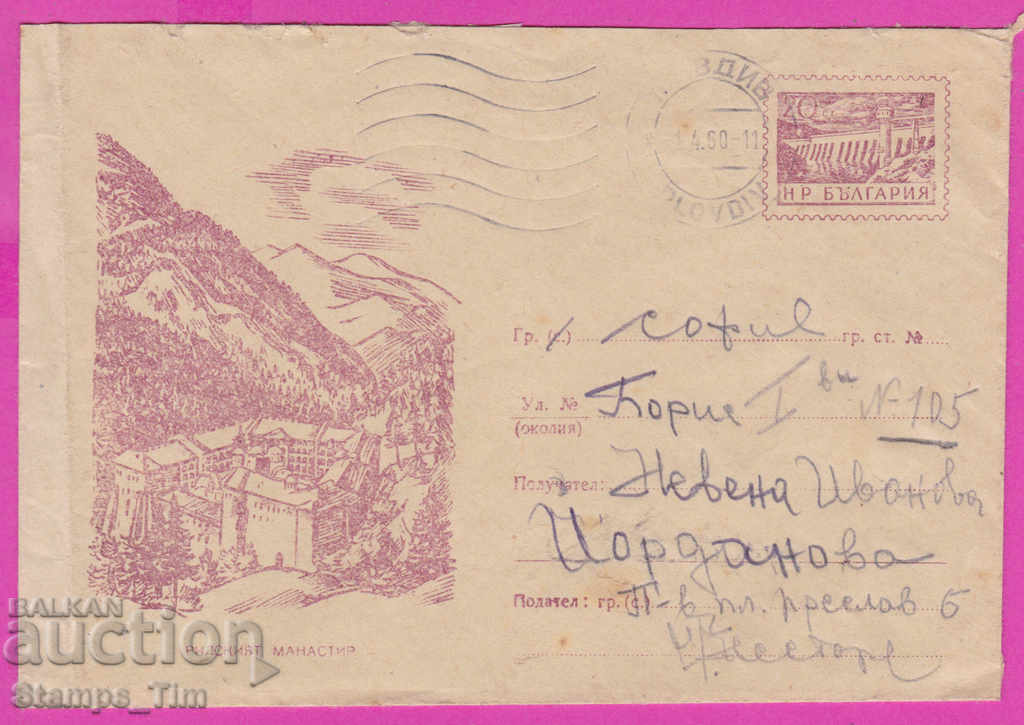 ВДИВ
4.60-11
PLOVDIV
20 СТ
НР БЪЛГАРИЯ
Гр. (с.) София гр. ст. №
Ул. № Борис I ви № 105
(околия)
Получател: Невена Иванова
Йорданова
Подател: гр. (с.) П-в пл. Преслав 6
РИЛСКИЯТ МАНАСТИР
BALKAN
auction
Stamps_Tim